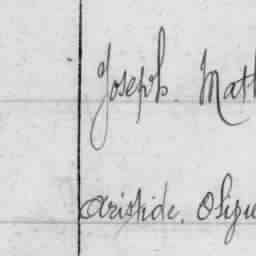 Joseph. Math
Aristide.